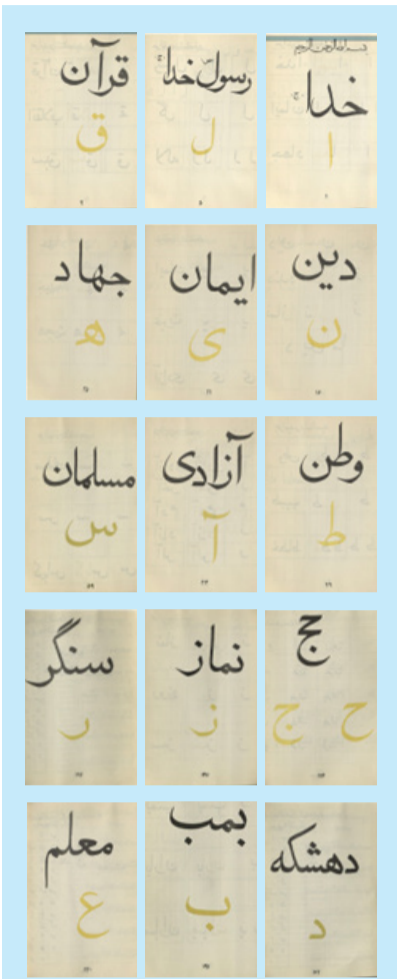 بسم الله الرحمن الرحیم
خدا
ا
رسول خدا
ل
قرآن
ق
دین
ن
ایمان
ی
جهاد
ه
وطن
ط
آزادی
آ
مسلمان
س
حج
ح ج
نماز
ز
سنگر
ر
دهشکه
د
بمب
ب
معلم
ع